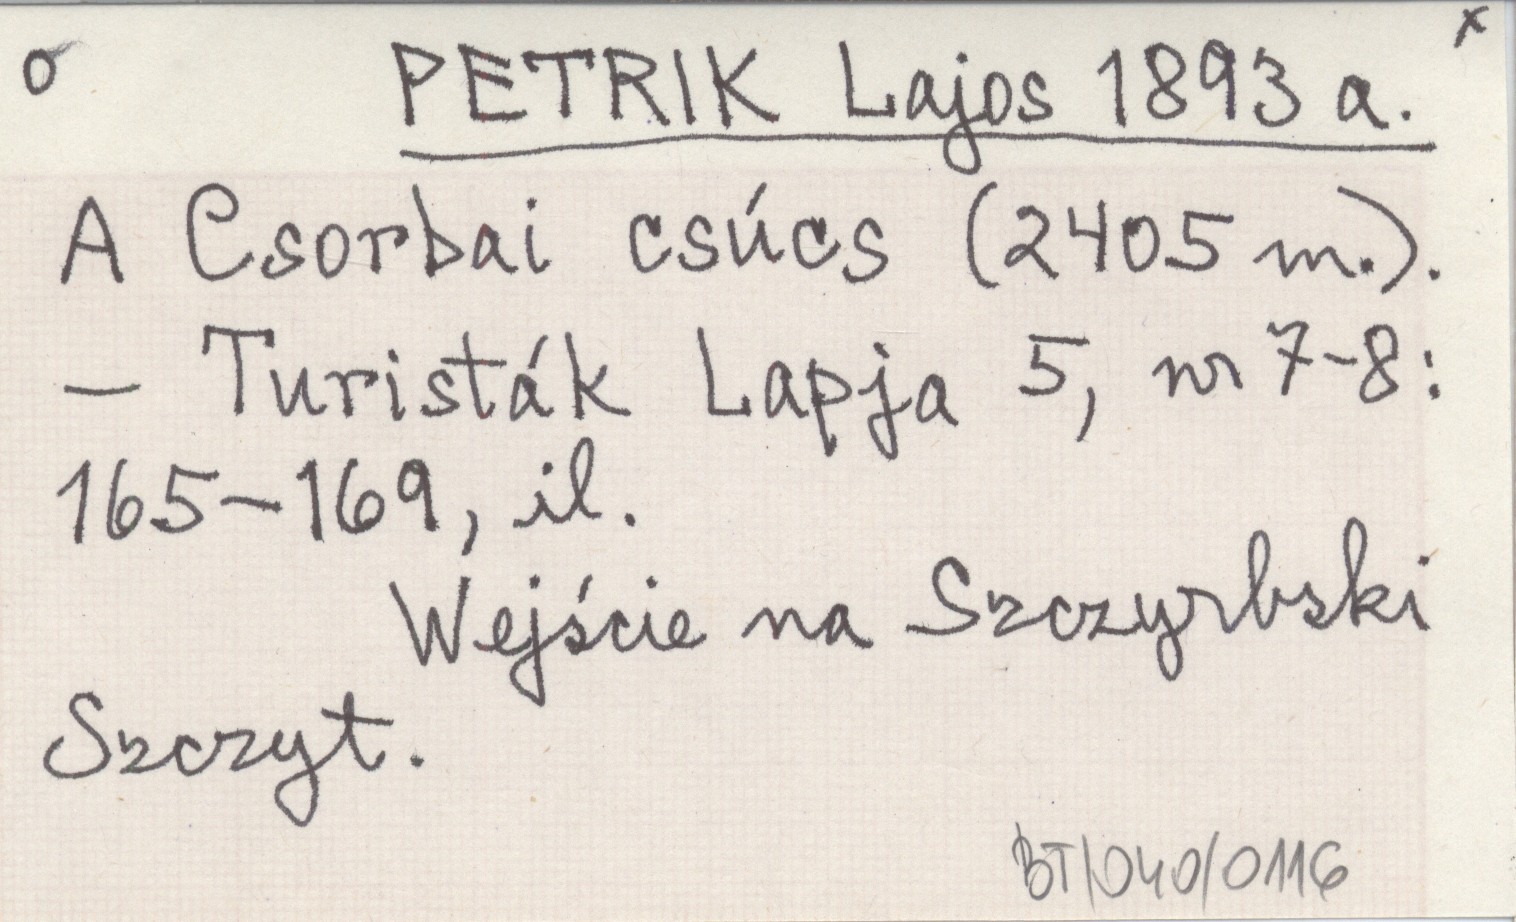 o PETRIK Lajos 1893 a. x
A Csorbai csúcs (2405 m.).
– Turisták Lapja 5, nr 7-8:
165–169, il.
Wejście na Szczyrbski
Szczyt.
BT/040/0116